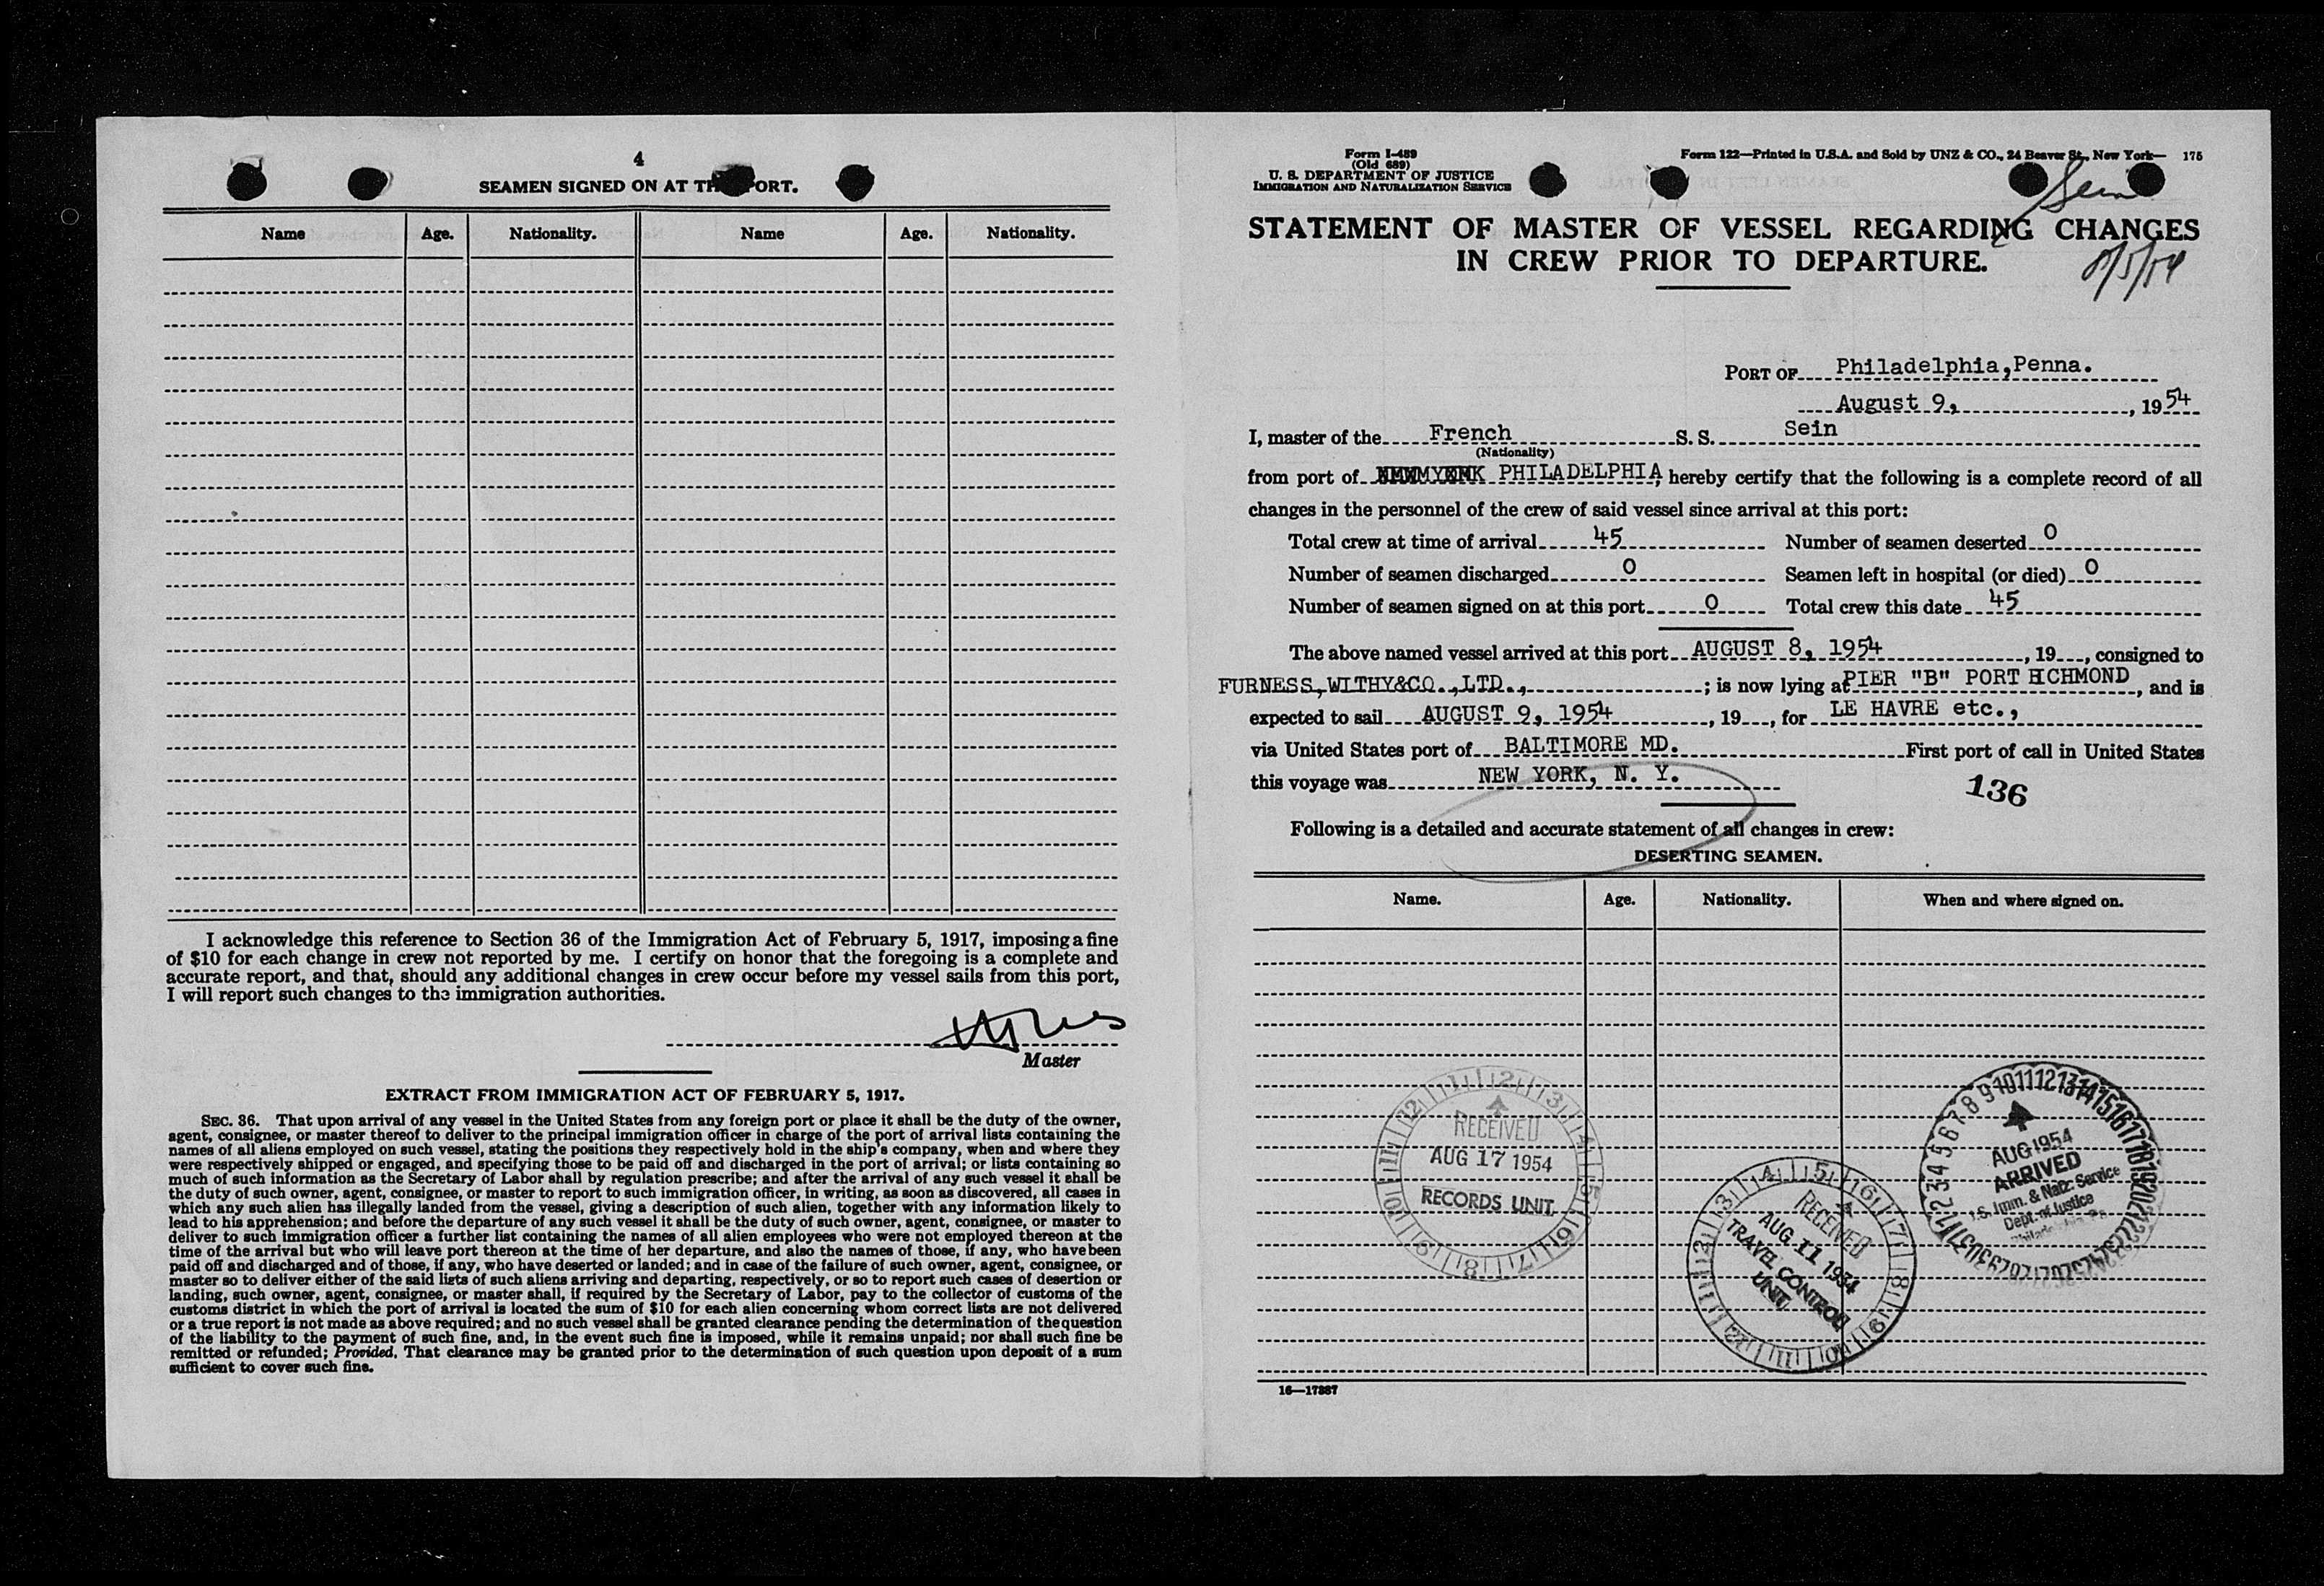 4
SEAMEN SIGNED ON AT TH PORT.
Name Age. Nationality. Name Age. Nationality.
I acknowledge this reference to Section 36 of the Immigration Act of February 5, 1917, imposing a fine
of $10 for each change in crew not reported by me. I certify on honor that the foregoing is a complete and
accurate report, and that, should any additional changes in crew occur before my vessel sails from this port,
I will report such changes to the immigration authorities.
Master
EXTRACT FROM IMMIGRATION ACT OF FEBRUARY 5, 1917.
SEC. 36. That upon arrival of any vessel in the United States from any foreign port or place it shall be the duty of the owner,
agent, consignee, or master thereof to deliver to the principal immigration officer in charge of the port of arrival lists containing the
names of all aliens employed on such vessel, stating the positions they respectively hold in the ship's company, when and where they
were respectively shipped or engaged, and specifying those to be paid off and discharged in the port of arrival; or lists containing so
much of such information as the Secretary of Labor shall by regulation prescribe; and after the arrival of any such vessel it shall be
the duty of such owner, agent, consignee, or master to report to such immigration officer, in writing, as soon as discovered, all cases in
which any such alien has illegally landed from the vessel, giving a description of such alien, together with any information likely to
lead to his apprehension; and before the departure of any such vessel it shall be the duty of such owner, agent, consignee, or master to
deliver to such immigration officer a further list containing the names of all alien employees who were not employed thereon at the
time of the arrival but who will leave port thereon at the time of her departure, and also the names of those, if any, who have been
paid off and discharged and of those, if any, who have deserted or landed; and in case of the failure of such owner, agent, consignee, or
master so to deliver either of the said lists of such aliens arriving and departing, respectively, or so to report such cases of desertion or
landing, such owner, agent, consignee, or master shall, if required by the Secretary of Labor, pay to the collector of customs of the
customs district in which the port of arrival is located the sum of $10 for each alien concerning whom correct lists are not delivered
or a true report is not made as above required; and no such vessel shall be granted clearance pending the determination of the question
of the liability to the payment of such fine, and, in the event such fine is imposed, while it remains unpaid; nor shall such fine be
remitted or refunded; Provided, That clearance may be granted prior to the determination of such question upon deposit of a sum
sufficient to cover such fine.
Form I-489
(Old 689)
U. S. DEPARTMENT OF JUSTICE
IMMIGRATION AND NATURALIZATION SERVICE
Form 122—Printed in U.S.A. and Sold by UNZ & CO., 24 Beaver St., New York— 175
Sein
STATEMENT OF MASTER OF VESSEL REGARDING CHANGES
IN CREW PRIOR TO DEPARTURE.
PORT OF Philadelphia,Penna.
August 9, , 1954
I, master of the French S. S. Sein
(Nationality)
from port of PHILADELPHIA, hereby certify that the following is a complete record of all
changes in the personnel of the crew of said vessel since arrival at this port:
Total crew at time of arrival 45 Number of seamen deserted 0
Number of seamen discharged 0 Seamen left in hospital (or died) 0
Number of seamen signed on at this port 0 Total crew this date 45
The above named vessel arrived at this port AUGUST 8, 1954 , 19 , consigned to
FURNESS,WITHY&CO.,LTD., ; is now lying at PIER "B" PORT RICHMOND , and is
expected to sail AUGUST 9, 1954 , 19 , for LE HAVRE etc.,
via United States port of BALTIMORE MD. First port of call in United States
this voyage was NEW YORK, N. Y.
136
Following is a detailed and accurate statement of all changes in crew:
DESERTING SEAMEN.
Name. Age. Nationality. When and where signed on.
RECEIVED
AUG 17 1954
RECORDS UNIT
RECEIVED
AUG 11 1954
TRAVEL CONTROL
UNIT
AUG 1954
ARRIVED
U.S. Imm. & Natz. Service
Dept. of Justice
16—17887